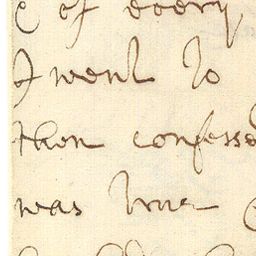 of every
I went to
then confesse
was true